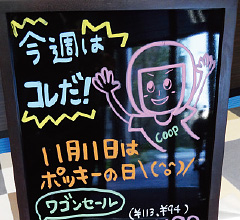 今週は
コレだ!
COOP
11月11日は
ポッキーの日\(^o^)/
ワゴンセール
(¥113、¥94)